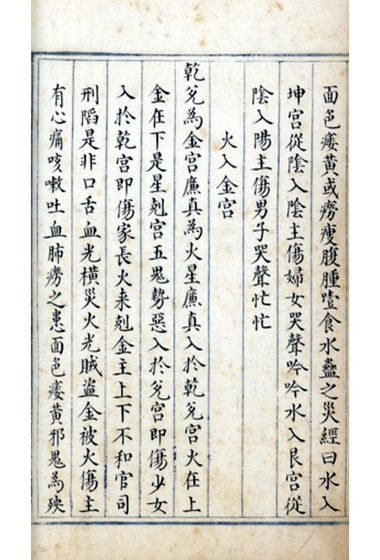 面色痿黃或癆瘦腹腫噎食水蠱之災經曰水入
坤宮從陰入陰主傷婦女哭聲吟吟水入艮宮從
陰入陽主傷男子哭聲忙忙
火入金宮
乾兌為金宮廉真為火星廉真入於乾兌宮火在上
金在下是星剋宮五鬼勢惡入於兌宮即傷少女
入於乾宮即傷家長火来剋金主上下不和官司
刑陷是非口舌血光橫災火光賊盜金被火傷主
有心痛咳嗽吐血肺癆之患面色痿黃邪鬼為殃